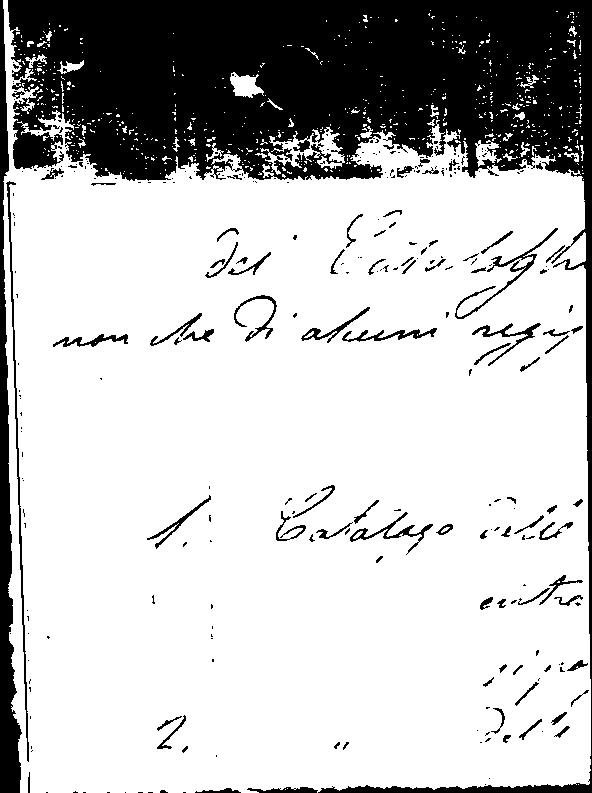 dei Cataloghi
non che di alcuni regis
1. Catalogo delle
entra
2. " delle